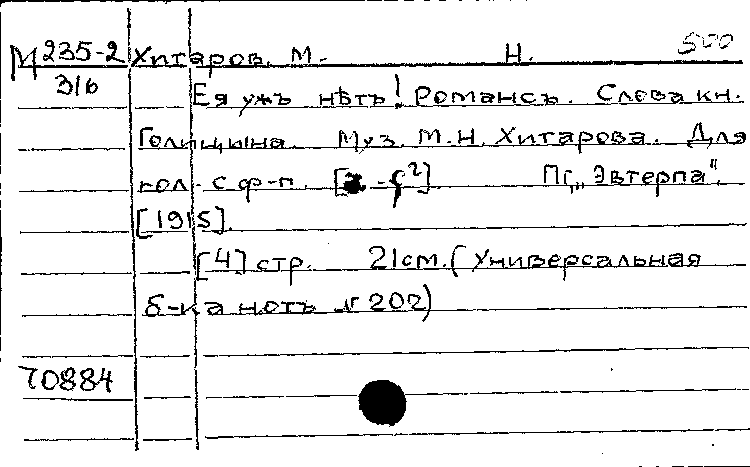 М 235-2 Хитаров. М. Н. 500
316
Ея ужъ нѣтъ! Романсъ. Слова кн.
Голицына. Муз. М.Н. Хитарова. Для
гол. с ф-п. Пг, „Эвтерпа".
[1915].
[4] стр. 21см. (Универсальная
б-ка нотъ № 202)
70884